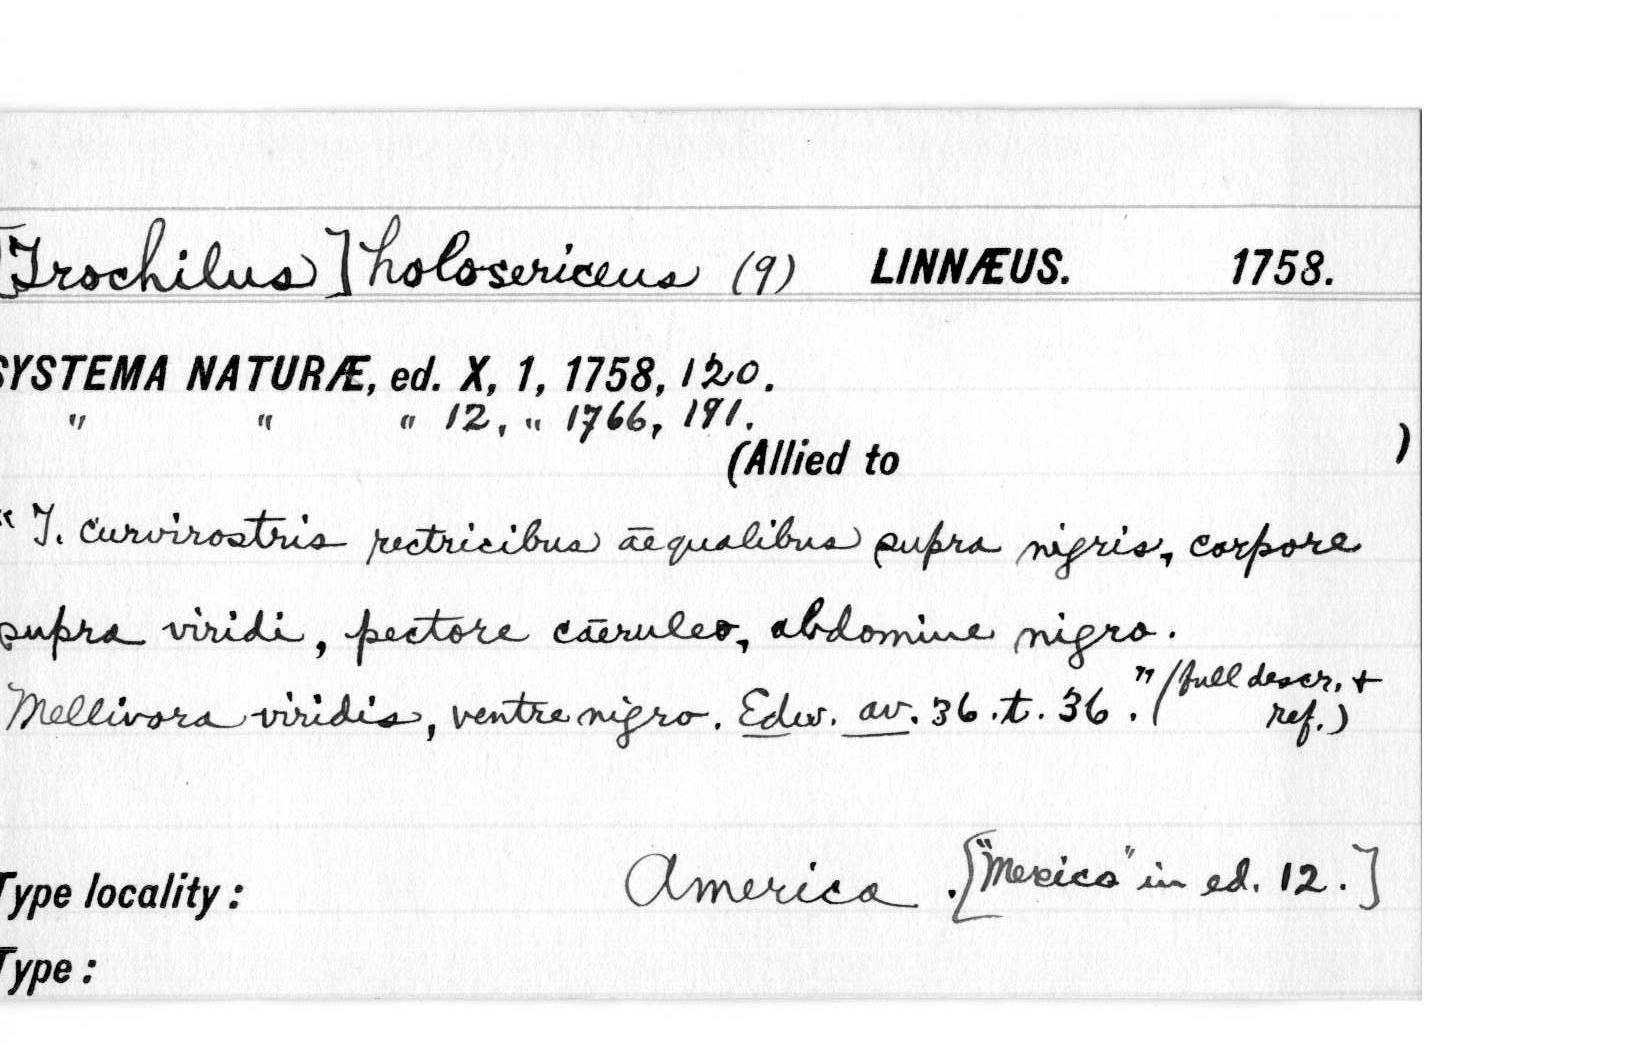 [Trochilus] holosericeus (9) LINNÆUS. 1758.
SYSTEMA NATURÆ, ed. X, 1, 1758, 120.
" " " 12, " 1766, 191.
(Allied to )
"T. curvirostris rectricibus aequalibus supra nigris, corpore
supra viridi, pectore caeruleo, abdomine nigro.
Mellivora viridis, ventre nigro. Edw. av. 36. t. 36." (full descr. +
ref.)
Type locality: America. ["Mexico" in ed. 12.]
Type: